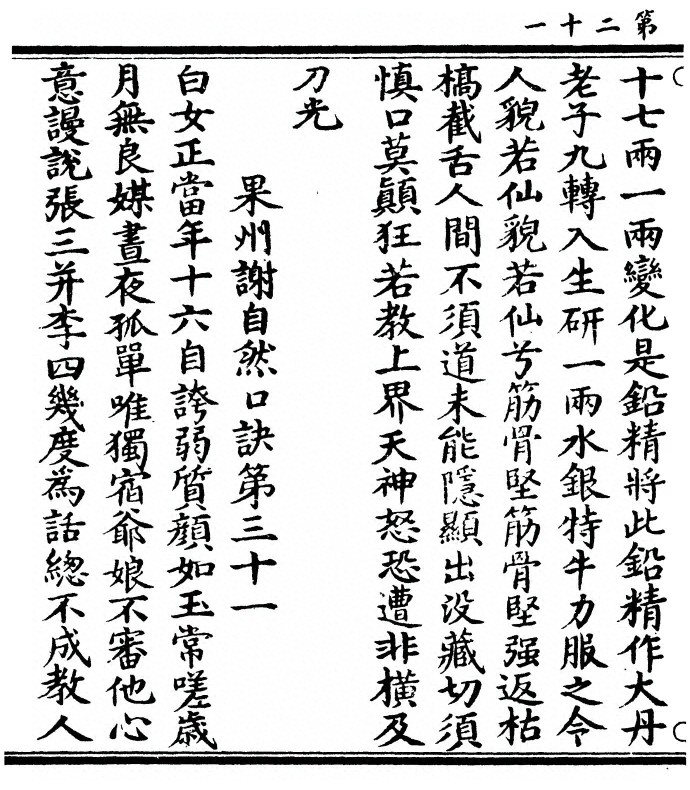 第二十一
十七兩一兩變化是鉛精將此鉛精作大丹
老子九轉入生研一兩水銀特牛力服之令
人貌若仙貌若仙兮筋骨堅筋骨堅强返枯
槁截舌人間不須道未能隱顯出没藏切須
慎口莫顛狂若教上界天神怒恐遭非橫及
刀光
果州謝自然口訣第三十一
白女正當年十六自誇弱質顔如玉常嗟歳
月無良媒晝夜孤單唯獨宿爺娘不審他心
意謾說張三并李四幾度爲話總不成教人